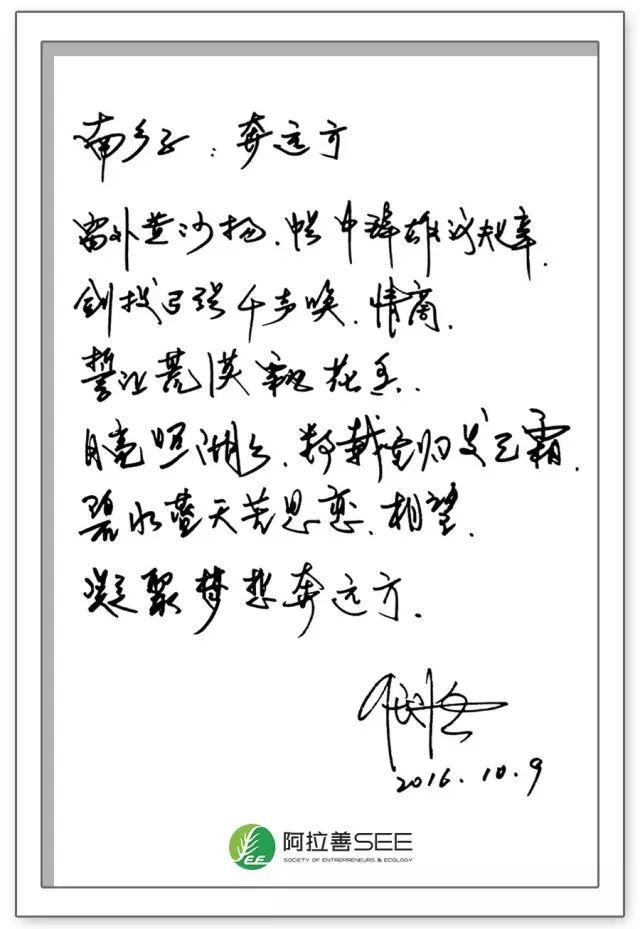 南乡子：奔远方
窗外黄沙扬.帐中群雄议规章.
剑拔弓张千声唤.情商.
誓让荒漠花香.
月亮照湖.数载归发已霜.
碧水蓝天苦思恋.相望.
凝聚梦想奔远方.
2016.10.9
阿拉善SEE
SOCIETY OF ENTREPRENEURS & ECOLOGY